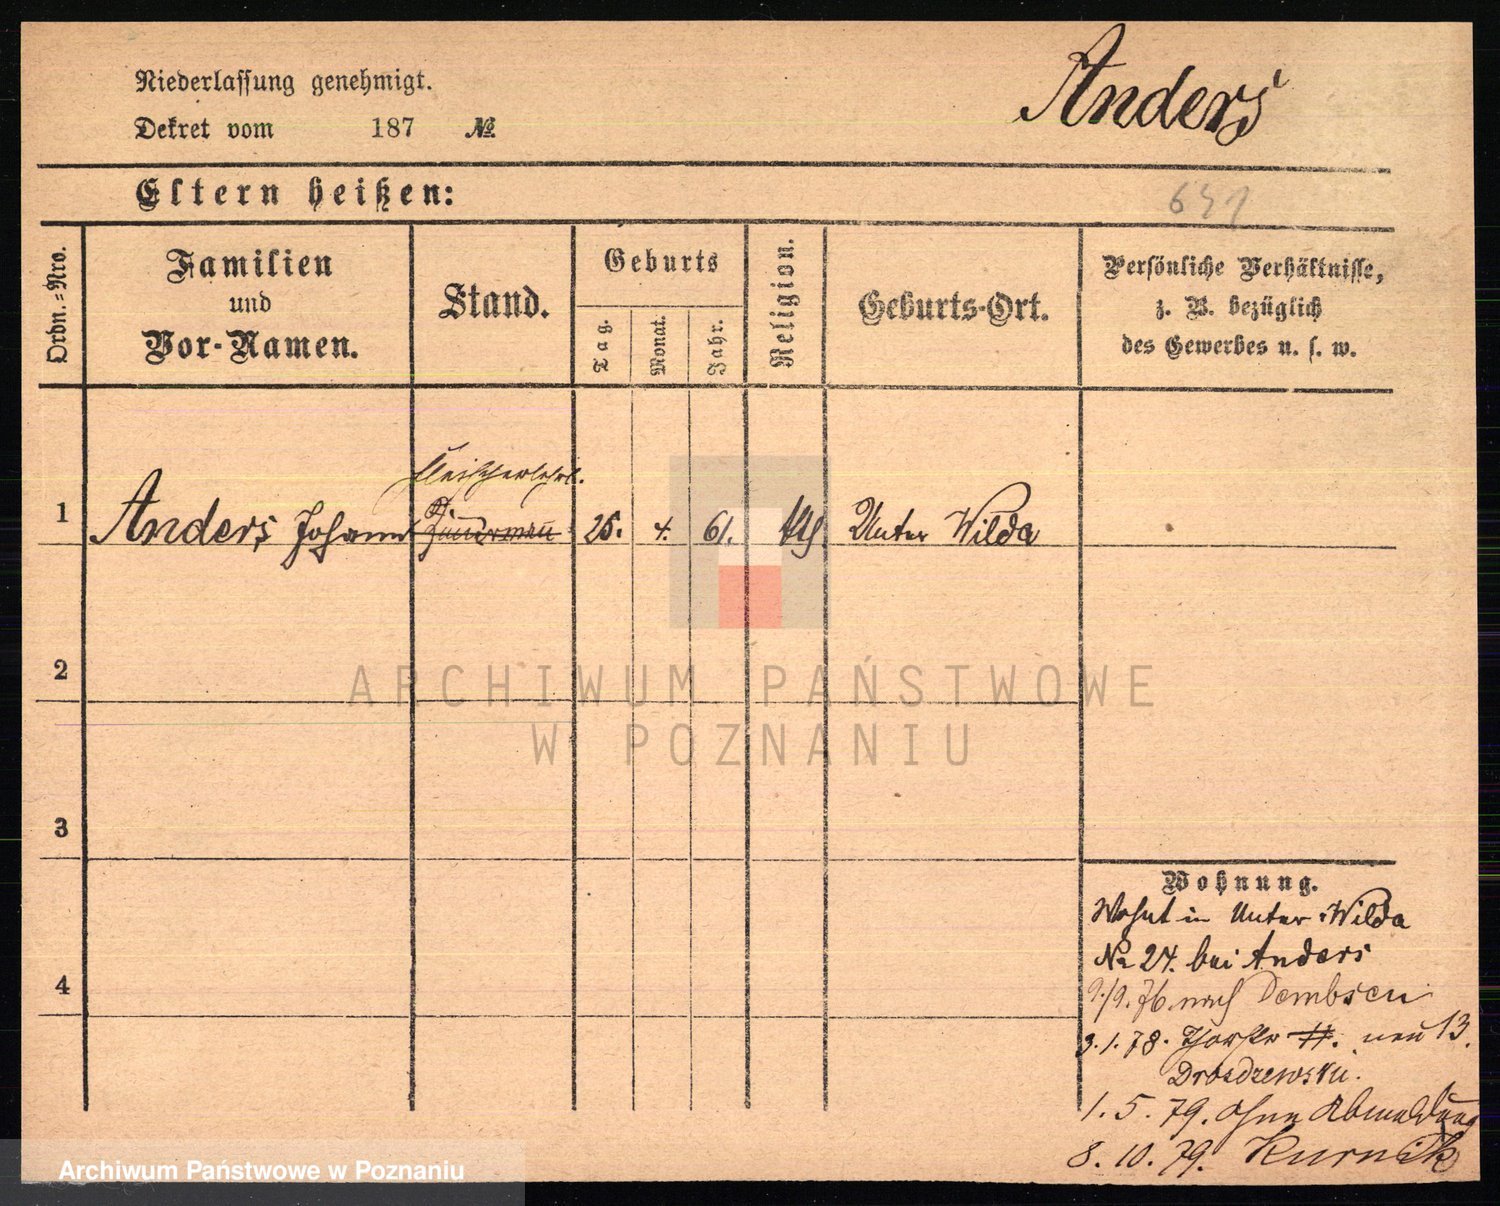 Anders
Niederlassung genehmigt.
Dekret vom 187 №
Eltern heißen:
Ordn.-Nro.
Familien
und
Vor-Namen.
Stand.
Geburts
Tag.
Monat.
Jahr.
Religion.
Geburts-Ort.
Persönliche Verhältnisse,
z. B. bezüglich
des Gewerbes u. s. w.
1 Anders Johann 4. 61. kth Unter Wilda
2
3
4
ARCHIWUM PAŃSTWOWE
W POZNANIU
Wohnung.
Wohnt in Unter Wilda
No 24. bei Anders
9./9. 76 nach Dembsen
3.1.78. neu 13.
Drosdzewski.
1.5.79. ohne Abmeldung
8.10.79. Kurnik
Archiwum Państwowe w Poznaniu